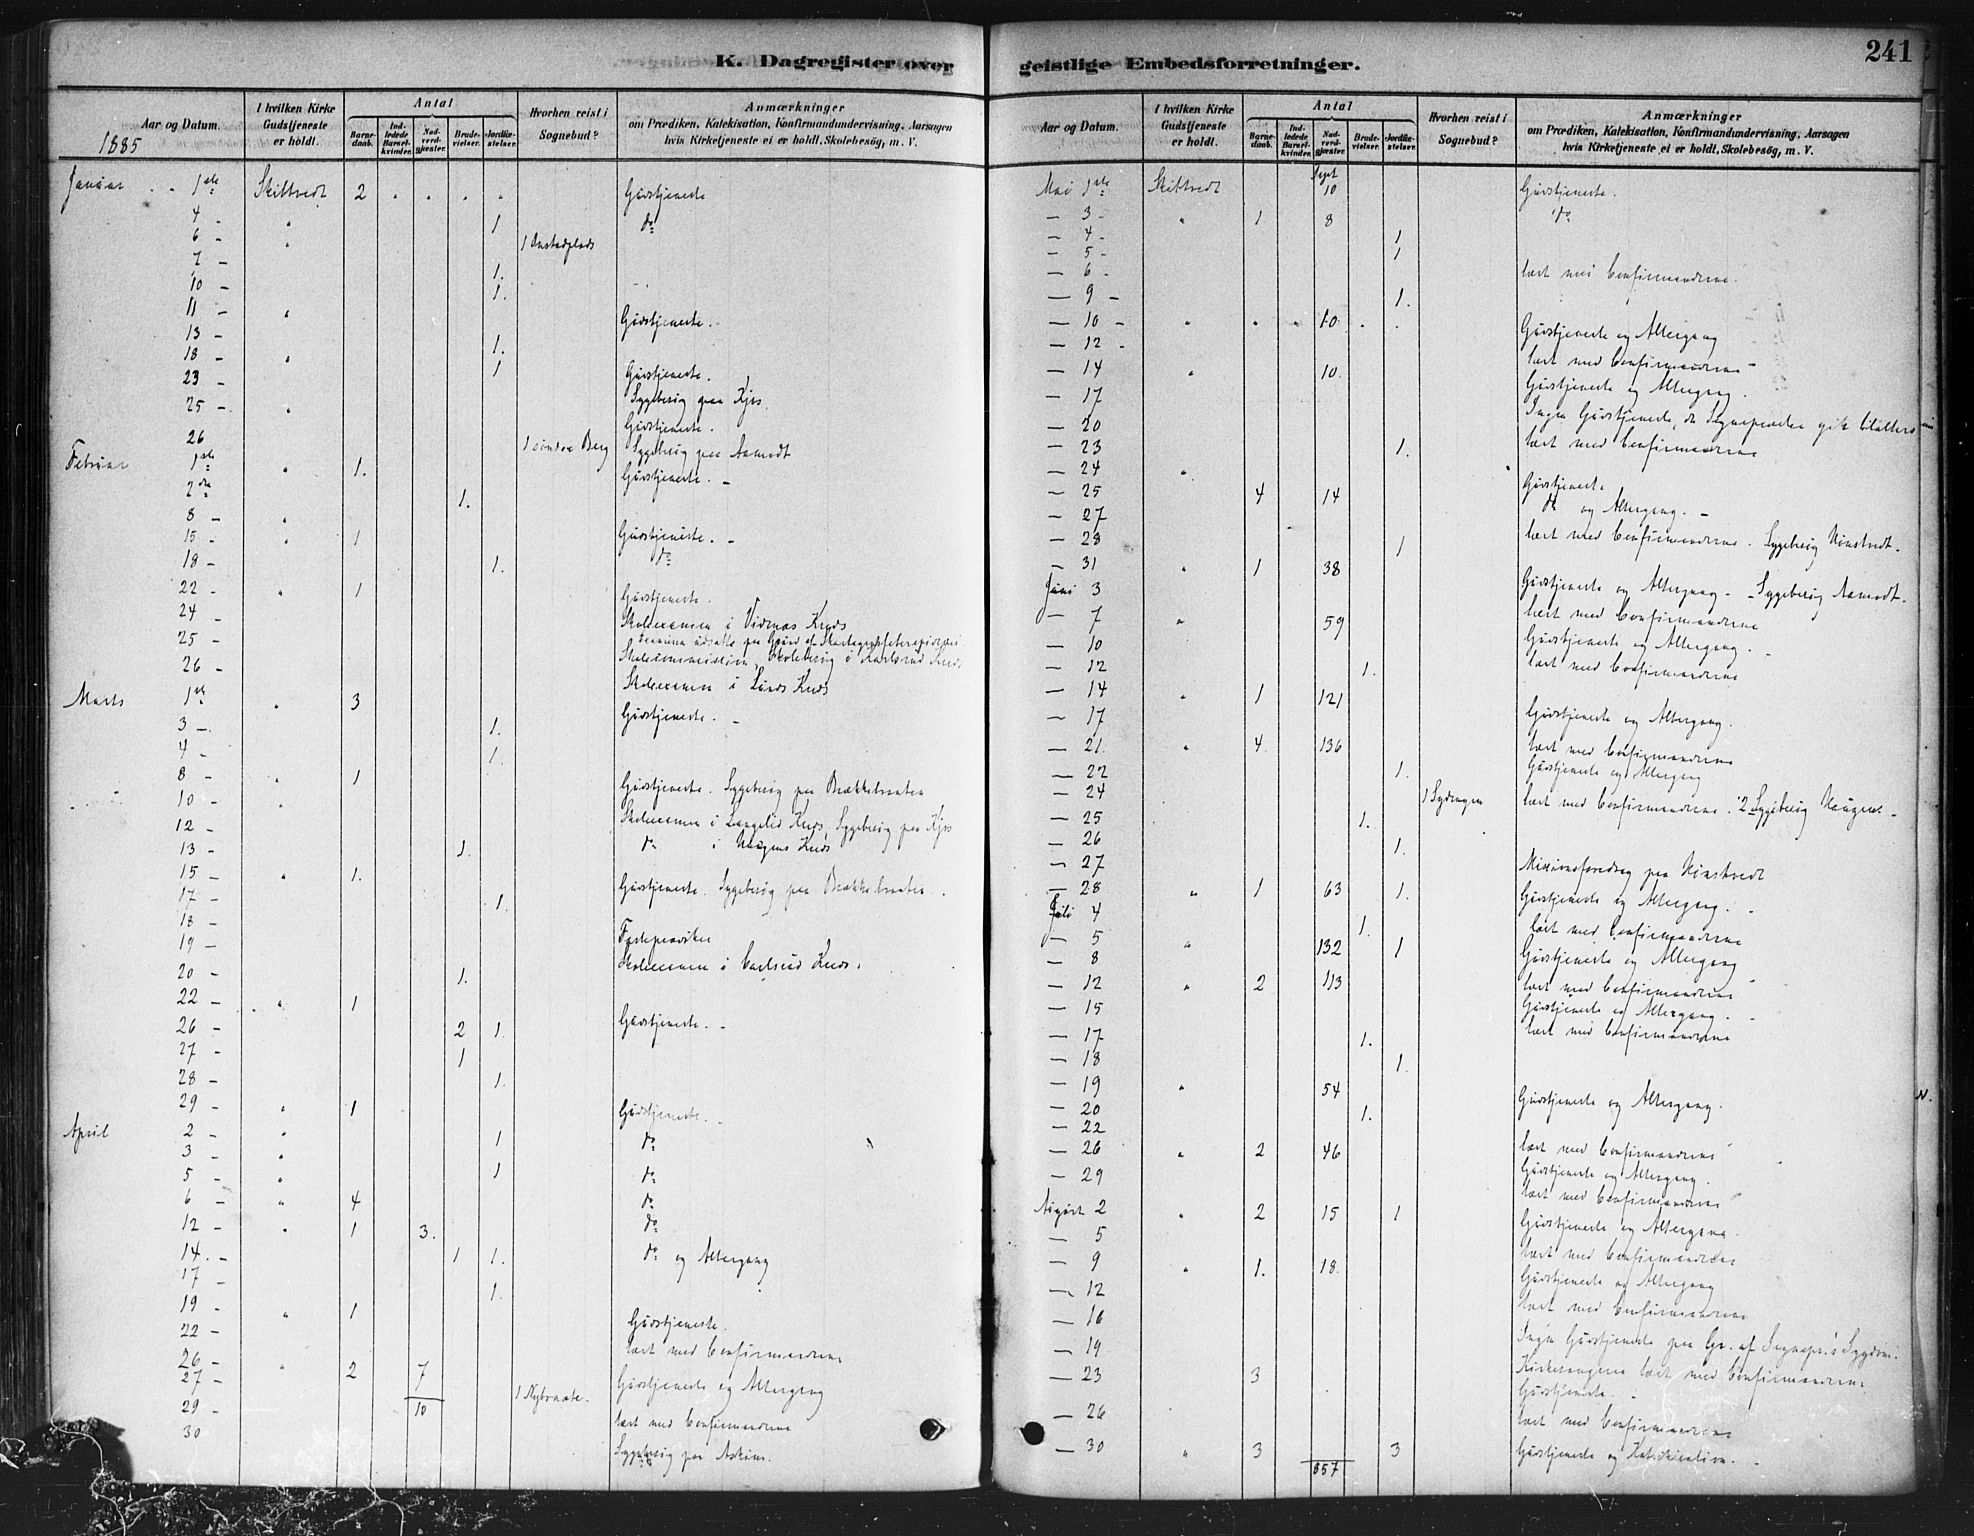 K. Dagregister over geistlige Embedsforretninger. 241
Aar og Datum. I hvilken Kirke Gudstjeneste er holdt. Antal Barnedaab. Indledede Barselkvinder. Nadverdgjæster. Brudevielser. Jordfæstelser. Hvorhen reist i Sognebud? Anmærkninger om Prædiken, Katekisation, Konfirmandundervisning, Aarsagen hvis Kirketjeneste ei er holdt, Skolebesøg, m. V.
1885
Januar 1ste Skiptvedt 2 Gudstjeneste
4 - " 1 do
6 - " 1 Onstadplads
7 - 1.
10 - 1.
11 - " Gudstjeneste.
13 - 1.
18 - " 1 Gudstjeneste.
23 - Sygebesøg paa Kjos.
25 - " Gudstjeneste.
26 1 søndre Berg Sygebesøg paa Aamodt
Februar 1ste " 1. Gudstjeneste. -
2den 1.
8 - " Gudstjeneste. -
15 - " 1 do
18 - 1.
22 - " 1 Gudstjeneste.
24 - Skoleexamen i Vidnas Kreds
25 - Skolecommission, Skolebesøg i Karlsrud Kreds
26 - Skoleexamen i Lunds Kreds
Marts 1ste " 3 Gudstjeneste. -
3 - 1.
4 - 1.
8 - " 1 Gudstjeneste. Sygebesøg paa Brækkebraaten
10 - " Skoleexamen i Langelid Kreds, Sygebesøg paa Kjos
12 - do i Haugens Kreds
13 - 1.
15 - " 1. Gudstjeneste. Sygebesøg paa Brækkebraaten
17 - 1.
18 - Fasteprædiken
19 - Skoleexamen i Carlsrud Kreds.
20 - 1.
22 - " 1 Gudstjeneste. -
26 - 2 1.
27 - 1
28 - 1.
29 - " 1 Gudstjeneste.
April 2 - " 1 do
3 - " do
5 - " 1 do
6 - " 4 do
12 - " 1 3. do og Altergang
14. - 1 1.
17 - 1.
19 - " 1 Gudstjeneste.
22 - læst med Confirmanderne
26 - " 2 7 Gudstjeneste og Altergang
27 - 1 Nybraate.
29 - 10 læst med Confirmanderne
30 Sygebesøg paa Askim.
Aar og Datum. I hvilken Kirke Gudstjeneste er holdt. Antal Barnedaab. Indledede Barselkvinder. Nadverdgjæster. Brudevielser. Jordfæstelser. Hvorhen reist i Sognebud? Anmærkninger om Prædiken, Katekisation, Konfirmandundervisning, Aarsagen hvis Kirketjeneste ei er holdt, Skolebesøg, m. V.
Mai 1ste Skiptvedt 10 Gudstjeneste.
— 3 - " 1 8 do
— 4 - 1
— 5 - 1
— 6 - læst med Confirmanderne.
— 9 - 1.
— 10 - " 10 Gudstjeneste og Altergang
— 12 - læst med Confirmanderne -
— 14 " 10. Gudstjeneste og Altergang.
— 17 Ingen Gudstjeneste, da Sognepresten gik tilalters
— 20 læst med Confirmanderne
— 23 1.
— 24 " Gudstjeneste
— 25 4 14 do og Altergang. -
— 27 læst med Confirmanderne. Sygebesøg
— 28 1
— 31 " 1 38 Gudstjeneste og Altergang - Sygebesøg Aamodt.
Juni 3 læst med Confirmanderne
— 7 " 59 Gudstjeneste og Altergang.
— 10 læst med Confirmanderne
— 12 1.
— 14 " 1 121 Gudstjeneste og Altergang.
— 17 læst med Confirmanderne
— 21. " 4 136 Gudstjeneste og Altergang
— 22 1.
— 24 1 læst med Confirmanderne. 2 Sygebesøg Haugen. -
— 25 1.
— 26 1.
— 27 Missionsforedrag paa
— 28 " 1 63 1. Gudstjeneste og Altergang.
Juli 4 1. læst med Confirmanderne
— 5 " 132 1 Gudstjeneste og Altergang
— 8 læst med Confirmanderne
— 12 " 2 113 Gudstjeneste og Altergang.
— 15 læst med Confirmanderne
— 17 1.
— 18 1.
— 19 " 54 Gudstjeneste og Altergang.
— 20 1.
— 22 læst med Confirmanderne
— 26 " 2 46 Gudstjeneste og Altergang.
— 29 læst med Confirmanderne
August 2 " 2 15 1 Gudstjeneste og Altergang.
— 5 læst med Confirmanderne
— 9 " 1. 18. Gudstjeneste og Altergang
— 12 læst med Confirmanderne
— 16 Ingen Gudstjeneste paa Gr. af Sognepr.'s Sygdom.
— 19 Kirkesangeren læst med Confirmanderne
— 23 3 Gudstjeneste.
— 26 læst med Confirmanderne
— 30 " 3 3 Gudstjeneste og Katekisation.
857